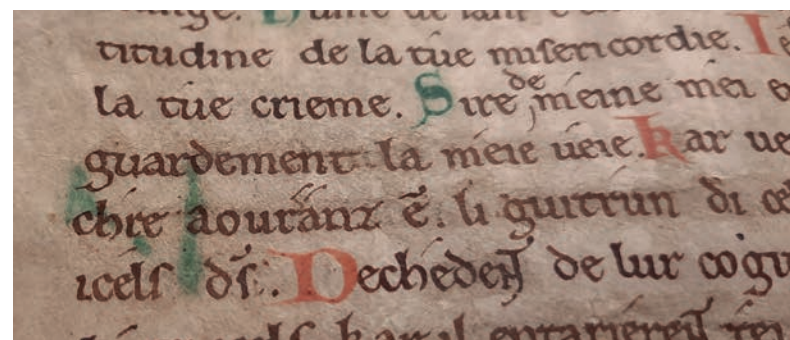 titudine de la tue misericordie. I
la tue crieme. Sire de meine mei e
guardement la meie ueie. kar ue
chre aouranz ē. li guitrun di ce
icels ds̄. Decheden de lur cogi
kar il entarierent tei